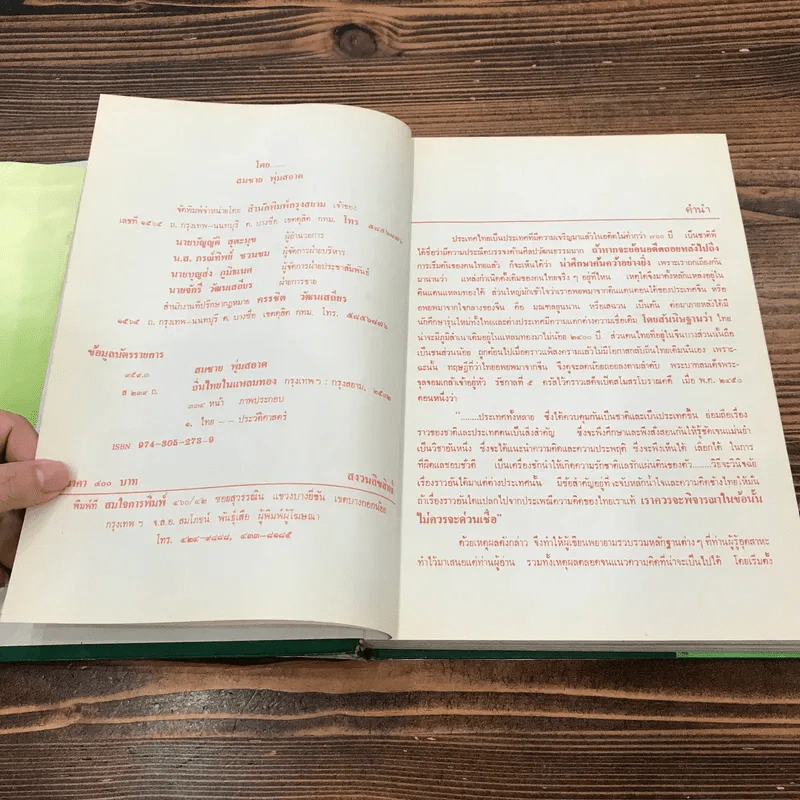 โดย......
สมชาย พุ่มสอาด
จัดพิมพ์จำหน่ายโดย สำนักพิมพ์กรุงสยาม เจ้าของ
เลขที่ ๑๕๖๔ ถ. กรุงเทพ–นนทบุรี ต. บางซื่อ เขตดุสิต กทม. โทร ๕๘๕๖๘๗๖
นายบัญญัติ สุตะบุข ผู้อำนวยการ
น.ส. ภรณ์ทิพย์ ชวนชม ผู้จัดการฝ่ายบริหาร
นายบุญส่ง ภูมิธเนศ ผู้จัดการฝ่ายประชาสัมพันธ์
นายจักรี วัฒนเสถียร ผู้จัดการฝ่ายการขาย
สำนักงานที่ปรึกษากฎหมาย ครรชิต วัฒนเสถียร
๑๕๖๔ ถ. กรุงเทพ–นนทบุรี ต. บางซื่อ เขตดุสิต กทม. โทร. ๕๘๕๖๘๗๖
ข้อมูลบัตรรายการ
สมชาย พุ่มสอาด
ถิ่นไทยในแหลมทอง กรุงเทพฯ : กรุงสยาม,
หน้า ภาพประกอบ
๑. ไทย – – ประวัติศาสตร์
ISBN 974-305-273-9
ราคา ๔๐๐ บาท สงวนลิขสิทธิ์
พิมพ์ที่ สมใจการพิมพ์ ๔๖๐/๔๒ ซอยสุวรรณิน แขวงบางยี่ขัน เขตบางกอกน้อย
กรุงเทพฯ จ.ส.อ. สมโภชน์ พันธุ์เสือ ผู้พิมพ์ผู้โฆษณา
โทร. ๔๒๔–๙๘๘๘, ๔๓๓–๘๑๘๕
คำนำ
ประเทศไทยเป็นประเทศที่มีความเจริญมาแล้วในอดีตไม่ต่ำกว่า ๗๐๐ ปี เป็นชาติที่
ได้ชื่อว่ามีความประณีตบรรจงด้านศิลปวัฒนธรรมมาก ถ้าหากจะย้อนอดีตถอยหลังไปถึง
การเริ่มต้นของคนไทยแล้ว ก็จะเห็นได้ว่า น่าศึกษาค้นคว้าอย่างยิ่ง เพราะเราถกเถียงกัน
มานานว่า แหล่งกำเนิดดั้งเดิมของคนไทยจริง ๆ อยู่ที่ไหน เหตุใดจึงมาตั้งหลักแหล่งอยู่ใน
ดินแดนแหลมทองได้ ส่วนใหญ่มักเข้าใจว่าเราอพยพมาจากดินแดนตอนใต้ของประเทศจีน หรือ
อพยพมาจากใจกลางของจีน คือ มณฑลยูนนาน หรือเสฉวน เป็นต้น ต่อมาภายหลังได้มี
นักศึกษารุ่นใหม่ทั้งไทยและต่างประเทศมีความแตกต่างความเชื่อเดิม โดยสันนิษฐานว่า ไทย
น่าจะมีภูมิลำเนาเดิมอยู่ในแหลมทองมาไม่น้อย ๒๔๐๐ ปี ส่วนคนไทยที่อยู่ในจีนบางส่วนนั้นถือ
เป็นชนส่วนน้อย ถูกต้อนไปเมื่อคราวแพ้สงครามแล้วไม่มีโอกาสกลับถิ่นไทยเดิมนั่นเอง เพราะ-
ฉะนั้น ทฤษฎีที่ว่าไทยอพยพมาจากจีน จึงดูจะลดน้อยถอยลงตามลำดับ พระบาทสมเด็จพระ-
จุลจอมเกล้าเจ้าอยู่หัว รัชกาลที่ ๕ ตรัสไว้คราวเสด็จเปิดสโมสรโบราณคดี เมื่อ พ.ศ. ๒๔๕๐
ตอนหนึ่งว่า
"......ประเทศทั้งหลาย ซึ่งได้ควบคุมกันเป็นชาติและเป็นประเทศขึ้น ย่อมถือเรื่อง
ราวของชาติและประเทศตนเป็นสิ่งสำคัญ ซึ่งจะพึงศึกษาและพึงสั่งสอนกันให้รู้ชัดเจนแม่นยำ
เป็นวิชาอันหนึ่ง ซึ่งจะได้แนะนำความคิดและความประพฤติ ซึ่งจะพึงเห็นได้ เลือกได้ ในการ
ที่ผิดแลชอบชั่วดี เป็นเครื่องชักนำให้เกิดความรักชาติแลรักแผ่นดินของตัว......วิธีจะวินิจฉัย
เรื่องราวอันได้มาแต่ต่างประเทศนั้น มีข้อสำคัญอยู่ที่จะจับหลักน้ำใจและความคิดข้างไทยให้มั่น
ถ้าเรื่องราวอันใดแปลกไปจากประเพณีความคิดของไทยเราแท้ เราควรจะพิจารณาในข้อนั้น
ไม่ควรจะด่วนเชื่อ"
ด้วยเหตุผลดังกล่าว จึงทำให้ผู้เขียนพยายามรวบรวมหลักฐานต่าง ๆ ที่ท่านผู้รู้อุตสาหะ
ทำไว้มาเสนอแด่ท่านผู้อ่าน รวมทั้งเหตุผลตลอดจนแนวความคิดที่น่าจะเป็นไปได้ โดยเริ่มตั้ง